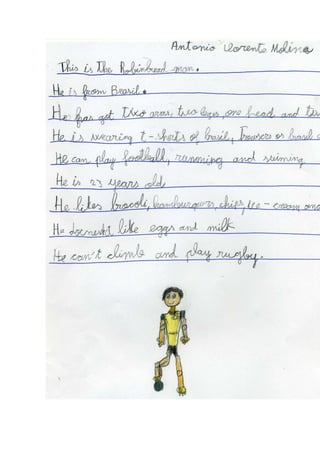 Antonio Llorente Molina
This is The Robinbread man.
He is from Brasil.
He has got two arms, two legs, one head and
He is wearing t-sherts of brasil, Trousers os brasil
He can play football, running and suiming
He is 23 years old
He likes brocoli, hamburguers, chips, ice-cream and
He doensn't like eggs and milk
He can't climb and play rugby.